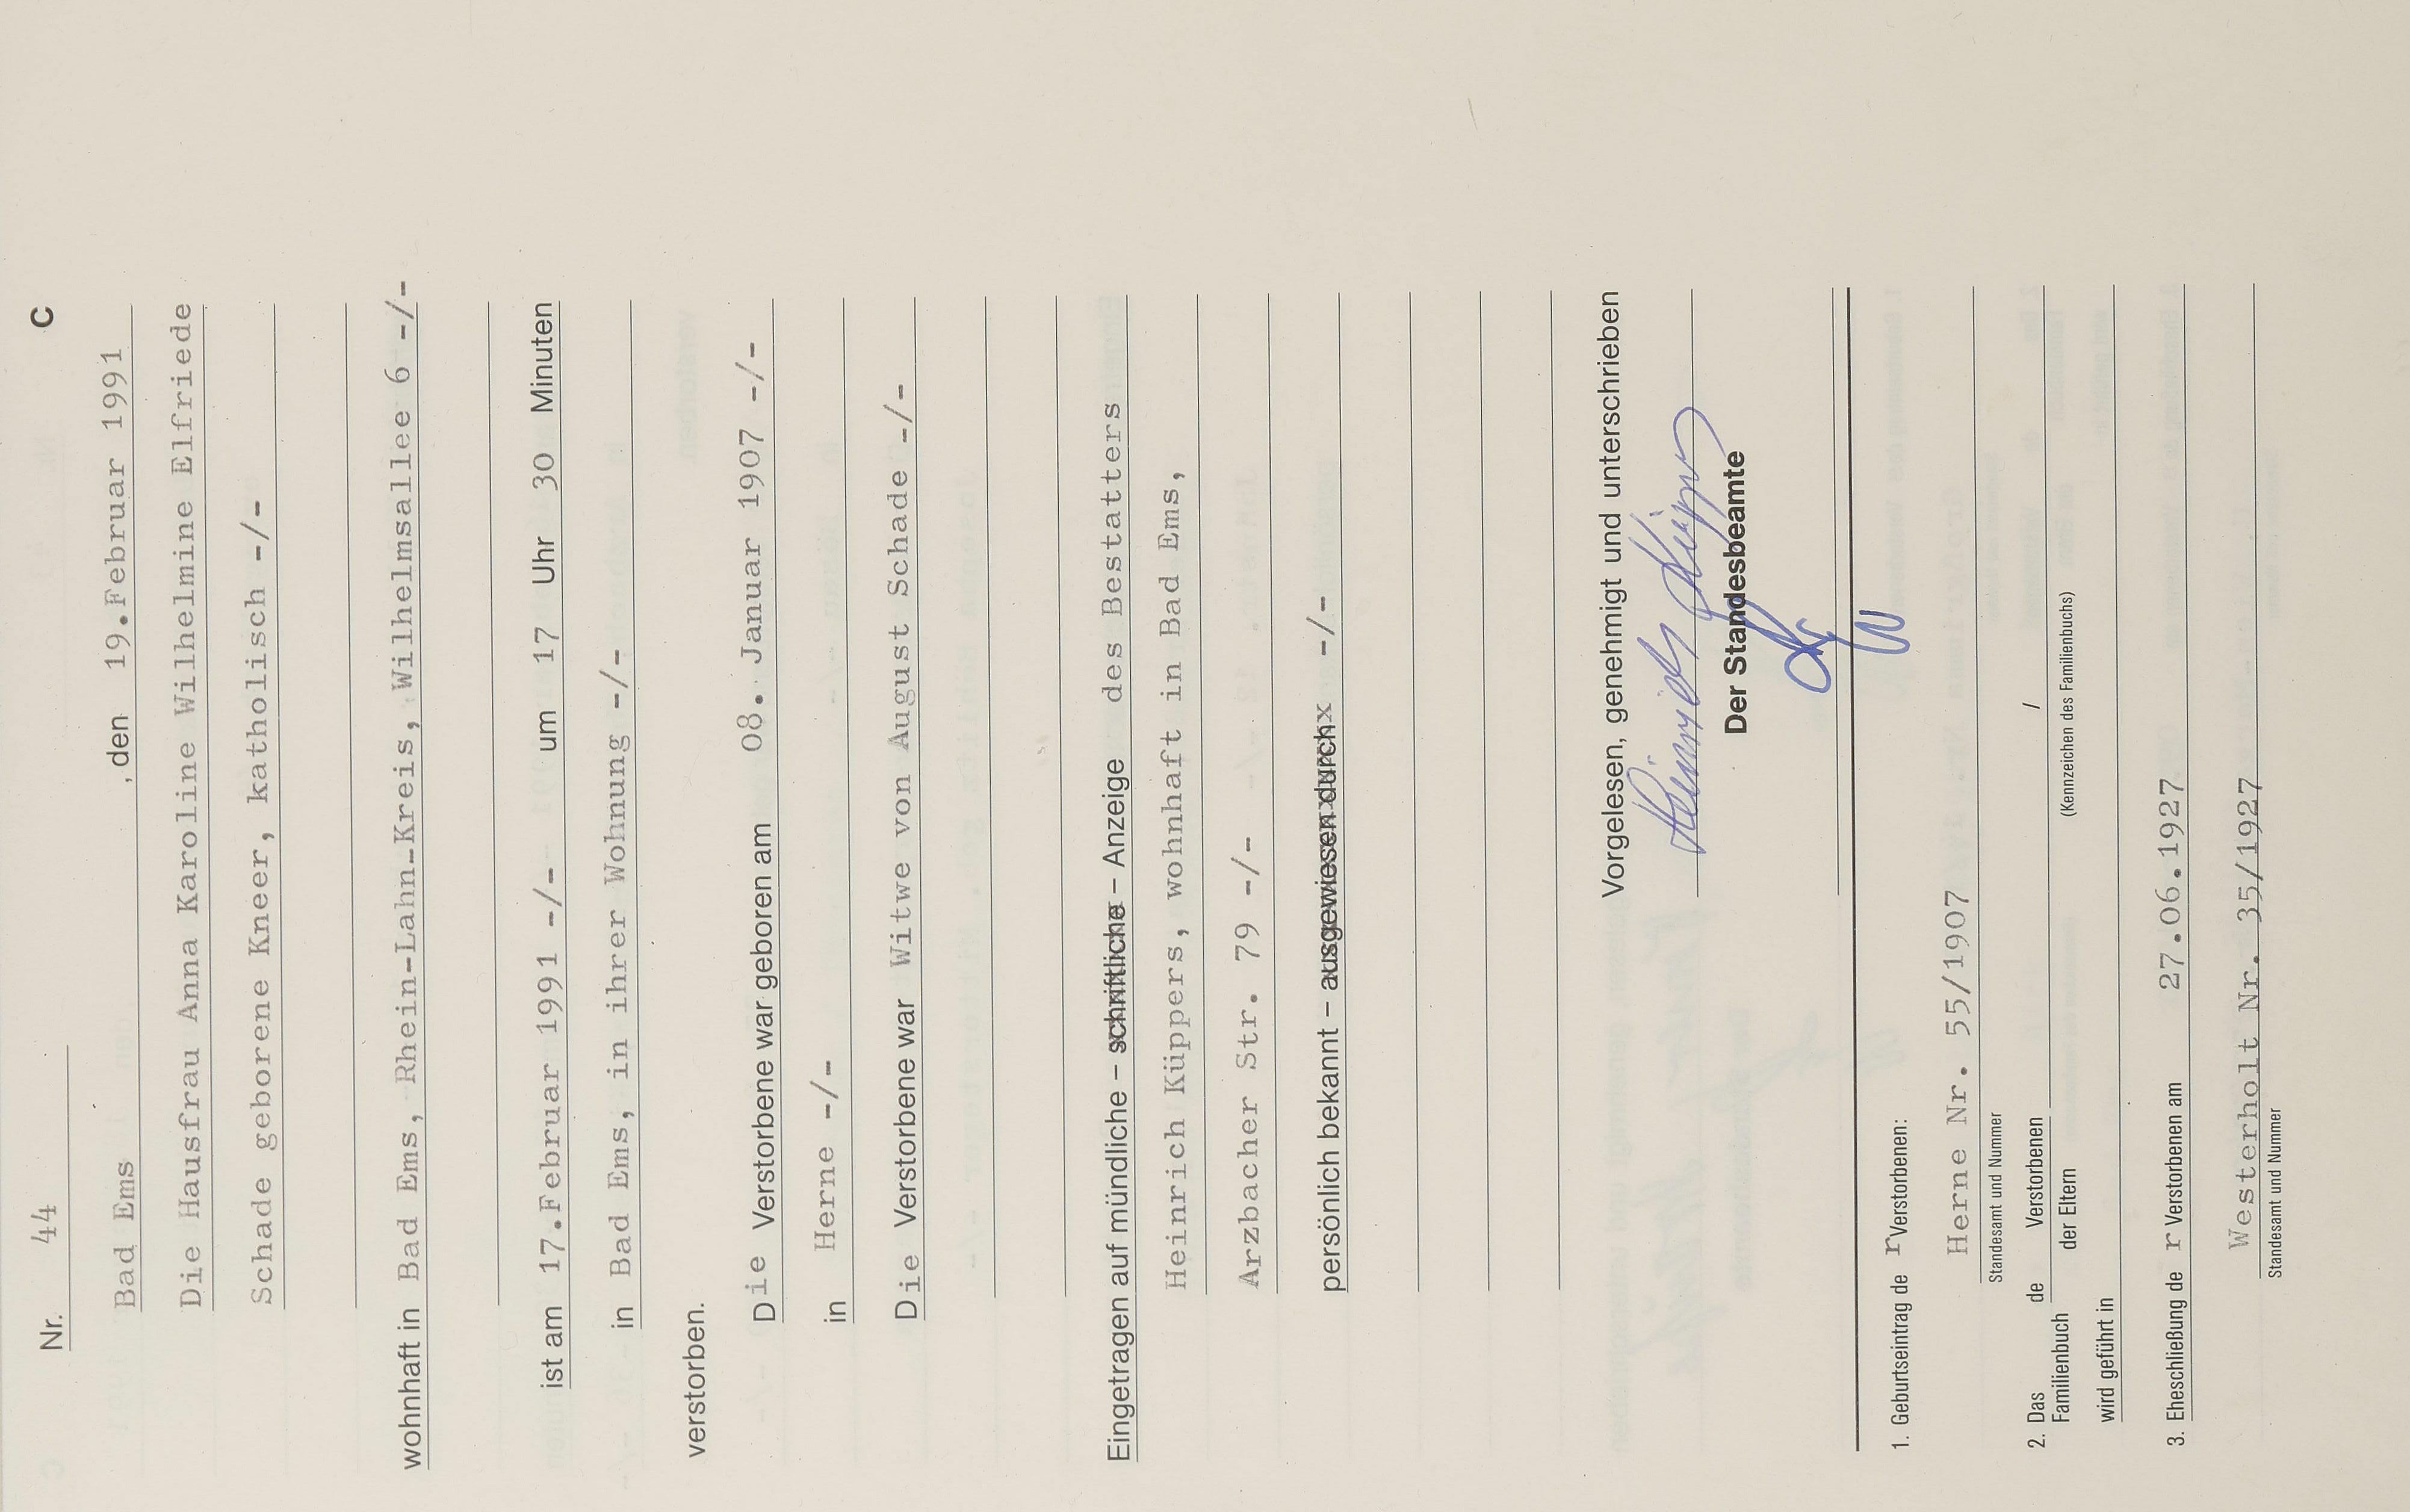 Nr. 44 C
Bad Ems, den 19.Februar 1991
Die Hausfrau Anna Karoline Wilhelmine Elfriede
Schade geborene Kneer, katholisch -/-
wohnhaft in Bad Ems, Rhein-Lahn-Kreis, Wilhelmsallee 6 -/-
ist am 17.Februar 1991 -/- um 17 Uhr 30 Minuten
in Bad Ems, in ihrer Wohnung -/-
verstorben.
Die Verstorbene war geboren am 08. Januar 1907 -/-
in Herne -/-
Die Verstorbene war Witwe von August Schade -/-
Eingetragen auf mündliche – schriftliche – Anzeige des Bestatters
Heinrich Küppers, wohnhaft in Bad Ems,
Arzbacher Str. 79 -/-
persönlich bekannt – ausgewiesen durch -/-
Vorgelesen, genehmigt und unterschrieben
Heinrich Küppers
Der Standesbeamte
1. Geburtseintrag de r Verstorbenen:
Herne Nr. 55/1907
Standesamt und Nummer
2. Das Familienbuch de Verstorbenen /
der Eltern (Kennzeichen des Familienbuchs)
wird geführt in
3. Eheschließung de r Verstorbenen am 27.06.1927
Westerholt Nr. 35/1927
Standesamt und Nummer